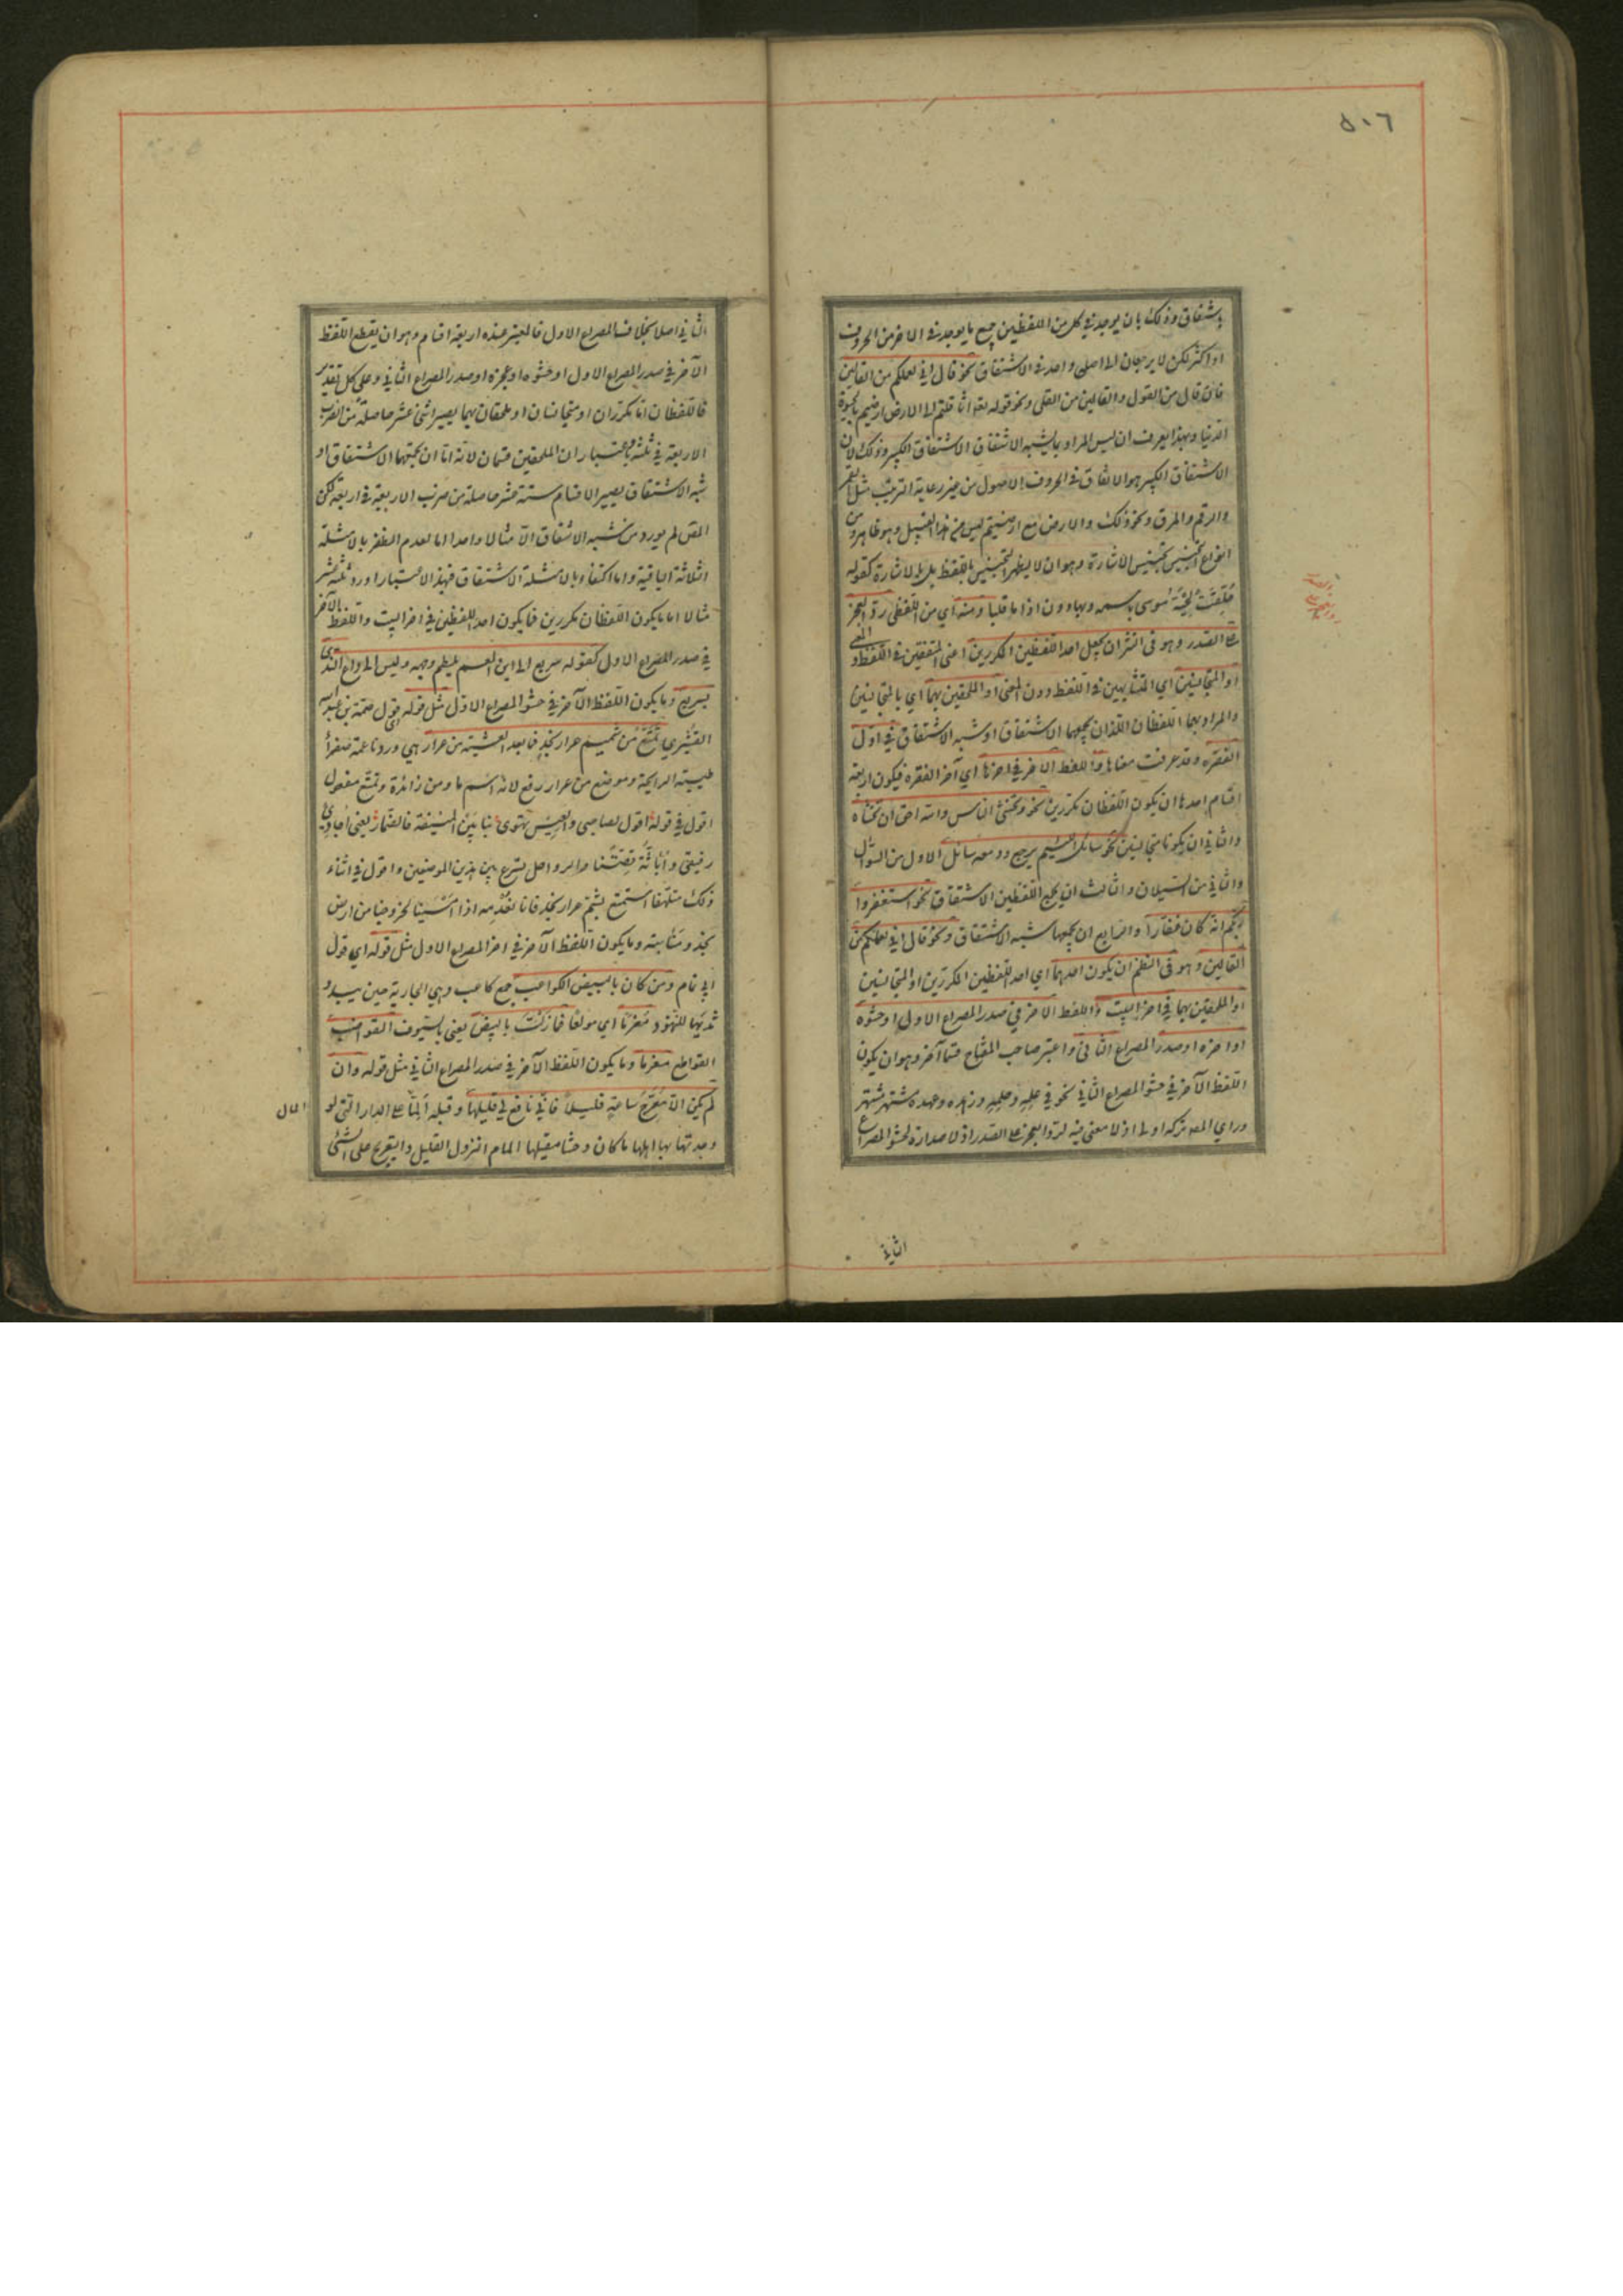 ٥٠٦
باشتقاق وذلك بان يوجد في كل من اللفظين جميع ما يوجد في الاخر من الحروف
او اكثر لكن لا يرجعان الى اصل واحد في الاشتقاق نحو قال اني لعملكم من القالين
فان قال من القول والقالين من القلى ونحو قوله تعم اثاقلتم الى الارض ارضيتم بالحيوة
الدنيا وبهذا يعرف ان ليس المراد بما يشبه الاشتقاق الاشتقاق الكبير وذلك لان
الاشتقاق الكبير هو الاتفاق في الحروف الاصول من غير رعاية الترتيب مثل القمر
والرقم والمرق ونحو ذلك والارض مع ارضيتم ليس من هذا القبيل وهو ظاهر ومن
انواع التجنيس تجنيس الاشارة وهو ان لا يظهر التجنيس باللفظ بل بالاشارة كقوله
حلقت لحية موسى باسمه وبهارون اذا ما قلبا ومنه اي من اللفظي رد العجز
على الصدر وهو في النثر ان يجعل احد اللفظين المكررين اعني المتفقين في اللفظ والمعنى
او المتجانسين اي المتشابهين في اللفظ دون المعنى او الملحقين بهما اي بالمتجانسين
والمراد بهما اللفظان اللذان يجمعهما الاشتقاق او شبه الاشتقاق في اول
الفقرة وقد عرفت معناها واللفظ الاخر في اخرها اي آخر الفقرة فيكون اربعة
اقسام احدها ان يكون اللفظان مكررين نحو وتخشى الناس والله احق ان تخشاه
والثاني ان يكونا متجانسين نحو سائل اللئيم يرجع ودمعه سائل الاول من السؤال
والثاني من السيلان والثالث ان يجمع اللفظين الاشتقاق نحو استغفروا
ربكم انه كان غفارا والرابع ان يجمعهما شبه الاشتقاق ونحو قال اني لعملكم من
القالين وهو في النظم ان يكون احدهما اي احد اللفظين المكررين او المتجانسين
او الملحقين بهما في اخر البيت واللفظ الاخر في صدر المصراع الاول او حشوه
او اخره او صدر المصراع الثاني واعتبر صاحب المفتاح قسما آخر وهو ان يكون
اللفظ الآخر في حشو المصراع الثاني نحو في علمه وحلمه وزهده وعهده مشتهر مشتهر
وراى المصـ تركه اولى اذ لا معنى فيه لرد العجز على الصدر اذ لا صدارة لحشو المصراع
الثاني
الثاني اصلا بخلاف المصراع الاول فالمعتبر عنده اربعة اقسام وهو ان يقع اللفظ
الآخر في صدر المصراع الاول او حشوه او عجزه او صدر المصراع الثاني وعلى كل تقدير
فاللفظان اما مكرران او متجانسان او ملحقان بهما يصير اثنى عشر حاصلة من ضرب
الاربعة في ثلثة وباعتبار ان الملحقين قسمان لانه اما ان يجمعهما الاشتقاق او
شبه الاشتقاق يصير الاقسام ستة عشر حاصلة من ضرب الاربعة في اربعة لكن
المصـ لم يورد من شبه الاشتقاق الا مثالا واحدا اما لعدم الظفر بالامثلة
الثلاثة الباقية واما اكتفاء بامثلة الاشتقاق فبهذا الاعتبار اورد ثلثة عشر
مثالا اما ما يكون اللفظان مكررين فما يكون احد اللفظين في اخر البيت واللفظ الآخر
في صدر المصراع الاول كقوله سريع الى ابن العم يلطم وجهه وليس الى داعي الندى
بسريع وما يكون اللفظ الآخر في حشو المصراع الاول مثل قوله اي قول صمة بن عبد الله
القشيري تمتع من شميم عرار نجد فما بعد العشية من عرار هي وردة ناعمة صفراء
طيبة الرايحة وموضع من عرار رفع لانه اسم ما ومن زائدة وتمتع مفعول
اقول في قوله اقول لصاحبي والعيس تهوى بنا بين المنيفة فالضمار يعني اجاري
رفيقي واباثه قصتنا والرواحل تسرع بين هذين الموضعين واقول في اثناء
ذلك متلهفا استمتع بشم عرار نجد فانا نعدمه اذا امسينا لخروجنا من ارض
نجد ومنابته وما يكون اللفظ الآخر في اخر المصراع الاول مثل قوله اي قول
ابي تمام ومن كان بالبيض الكواعب جمع كاعب وهي الجارية حين يبدو
ثديها للنهود مغرما اي مولعا فما زلت بالبيض يعني بالسيوف القواضب
القواطع مغرما وما يكون اللفظ الآخر في صدر المصراع الثاني مثل قوله وان
لم يكن الا معرج ساعة قليلا فاني نافع لي قليلها وقبله الما على الدار التي لو
وجدتها بها اهلها ما كان وحشا مقيلها المام النزول القليل والتعريج على الشئ